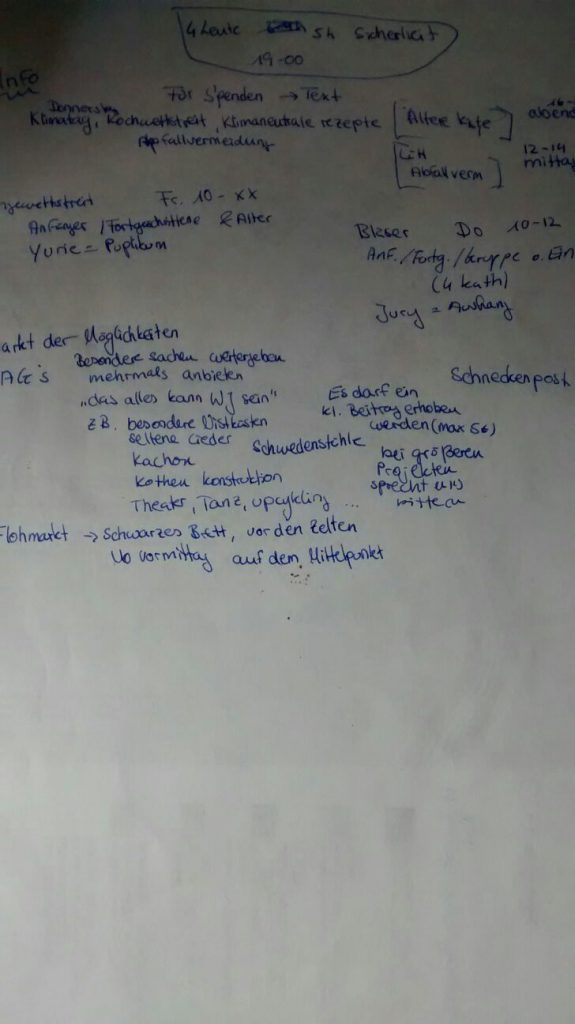 4 Leute 5h Sicherheit
19-00
Info
Für Spenden → Text
Donnerstag
Klimatag, Kochwettstreit, Klimaneutrale rezepte [Älter Kafe] abend
Apfallvermeidung
16-
[Lilli Abfallverm] 12-14 mittag
ngewettstreit Fr. 10 - xx
Anfänger / Fortgeschrittene & Älter
Yurie = Puplikum
Bläser Do 10-12
Anf. / Fortg. / Gruppe o. Ein
(4 kath)
Jury = Aushang
arkt der Möglichkeiten
Besondere sachen weitergeben
AG's mehrmals anbieten
"das alles kann WJ sein"
z.B. besondere Nistkästen
seltene Lieder
Schwedenstühle
Kachox
Kothen konstruktion
Theater, Tanz, upcykling ...
Es darf ein
kl. Beitrag erhoben
werden (max 5€)
bei größeren
Projekten
sprecht uns
Schneckenpost
Flohmarkt → Schwarzes Brett, vor den Zelten
No vormittag auf dem Mittelpunkt